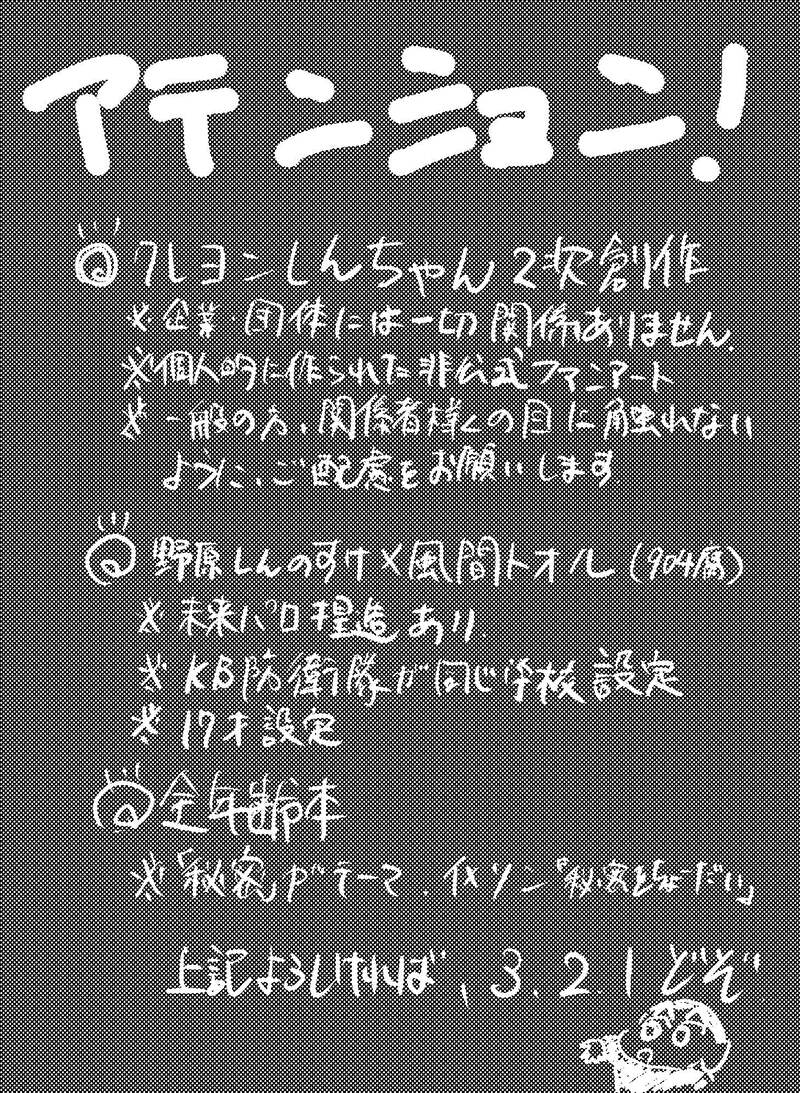 アテンション!
◎クレヨンしんちゃん2次創作
※企業・団体には一切関係ありません.
※個人的に作られた非公式ファンアート
※一般の方、関係者様への目に触れない
ように、ご配慮をお願いします.
◎野原しんのすけ×風間トオル(904腐)
※未来パロ捏造あり.
※KB防衛隊が同じ学校設定
※17才設定
◎全年齢本
※「秘密」がテーマ.イメソン「秘密をちょーだい」
上記よろしければ、3.2 1どぞ